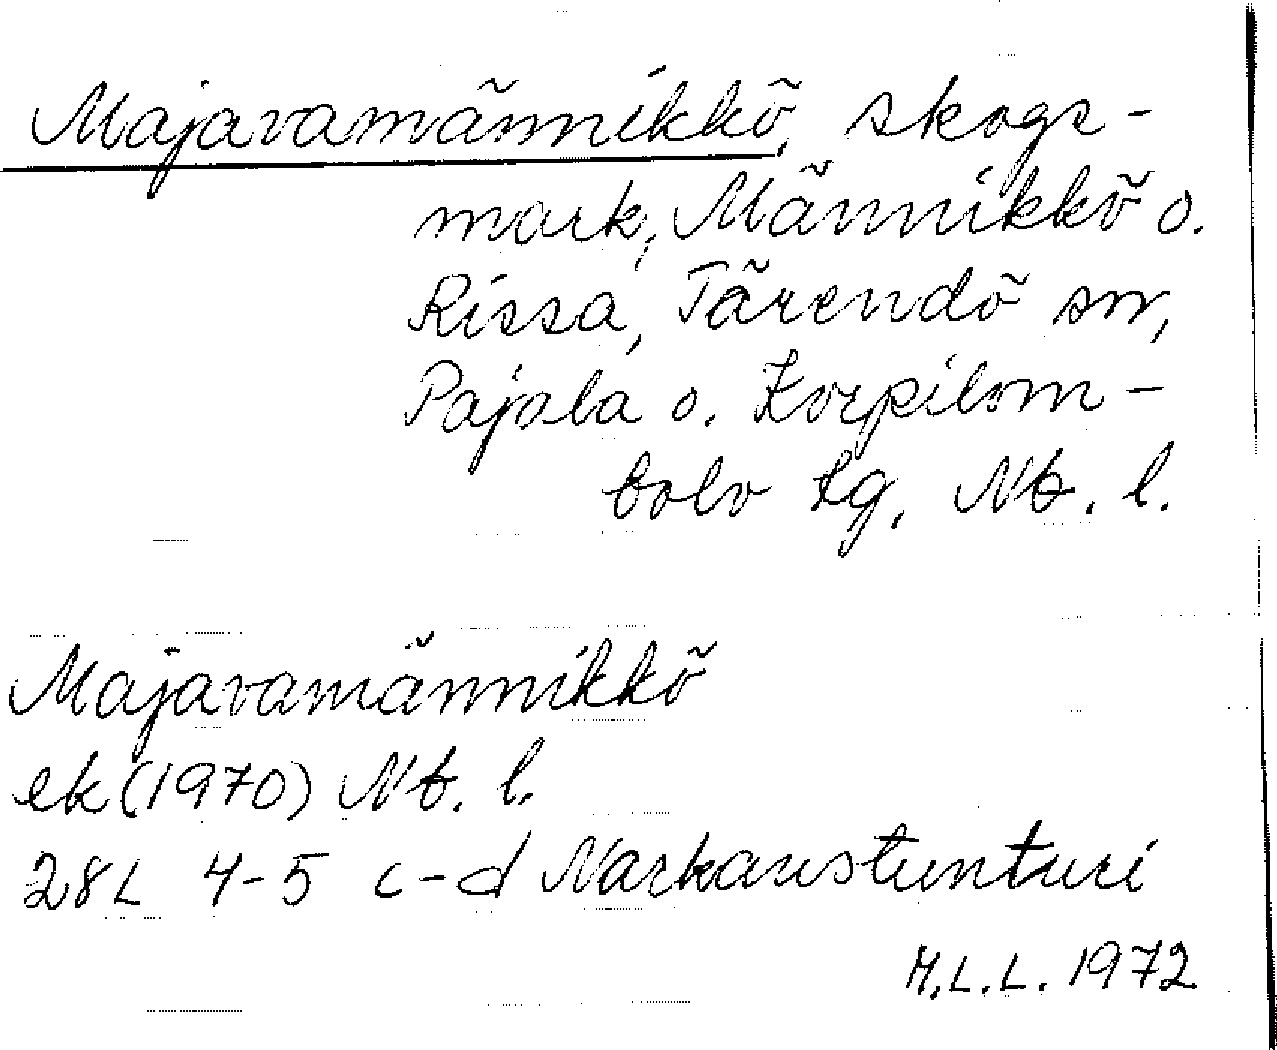 Majavamännikkö, skogs-
mark, Männikkö o.
Rissa, Tärendö sn,
Pajala o. Korpilom-
bolo tg, Nb. l.
Majavamännikkö
ek (1970) Nb. l.
28L 4-5 c-d Narkaustunturi
M.L.L. 1972